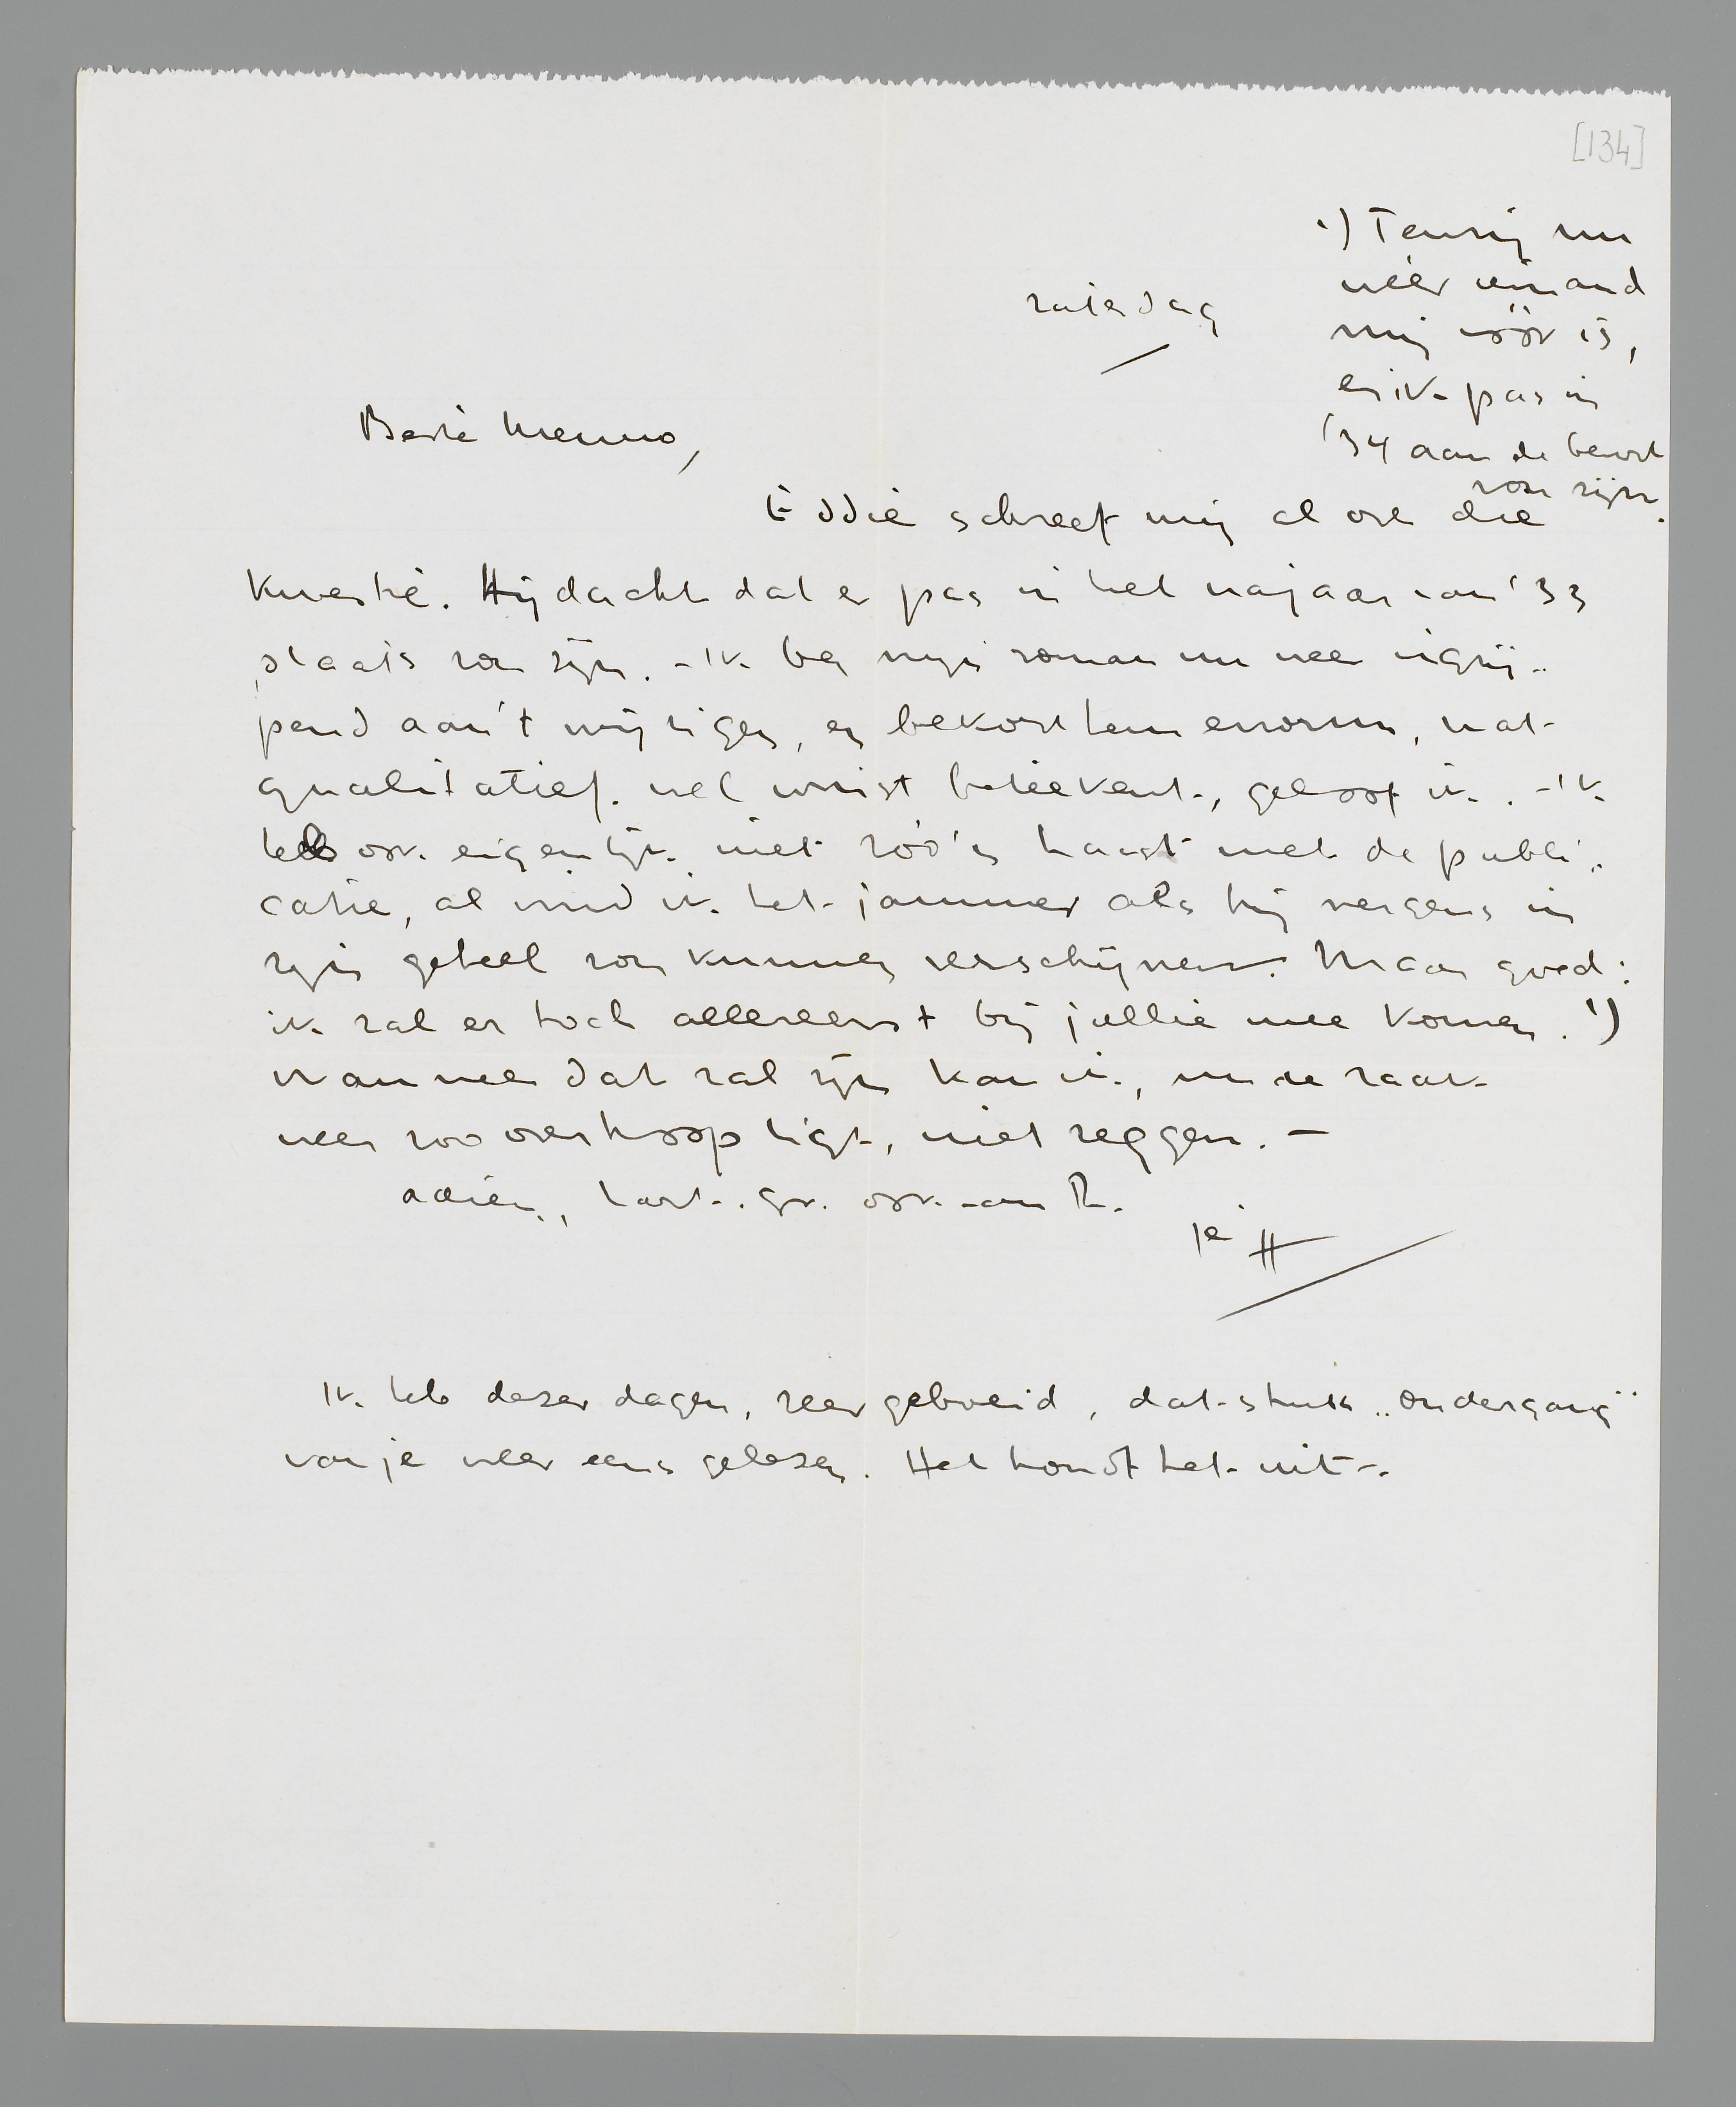 [134]
zaterdag
¹) Tenzij nu
wéér iemand
mij vóór is,
en ik pas in
'34 aan de beurt
zou zijn.
Beste Menno,
Eddie schreef mij al over die
kwestie. Hij dacht dat er pas in het najaar van '33
plaats zou zijn. - Ik ben mijn roman nu weer ingrij-
pend aan 't wijzigen, en bekort hem enorm, wat
qualitatief wel winst beteekent, geloof ik. - Ik
heb ook eigenlijk niet zóó'n haast met de publi-
catie, al vind ik het jammer als hij nergens in
zijn geheel zou kunnen verschijnen. Maar goed:
ik zal er toch allereerst bij jullie mee komen. ¹)
Wanneer dat zal zijn kan ik, nu de zaak
weer zoo overhoop ligt, niet zeggen. -
adieu, hart. gr. ook aan
je H
Ik heb dezer dagen, zeer geboeid, dat stuk „ondergang"
van je weer eens gelezen. Het houdt het uit -.